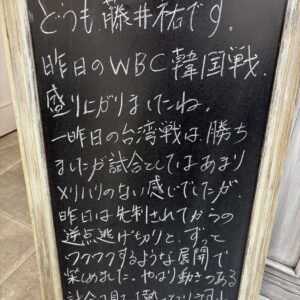 どうも藤井祐です。
昨日のWBC韓国戦、
盛り上がりましたね。
一昨日の台湾戦は、勝ち
ましたが試合としてはあまり
メリハリのない感じでしたが、
昨日は先制されてからの
逆点逃げ切りと、ずっと
ワクワクするような展開で
楽しめました。やはり動きのある
試合